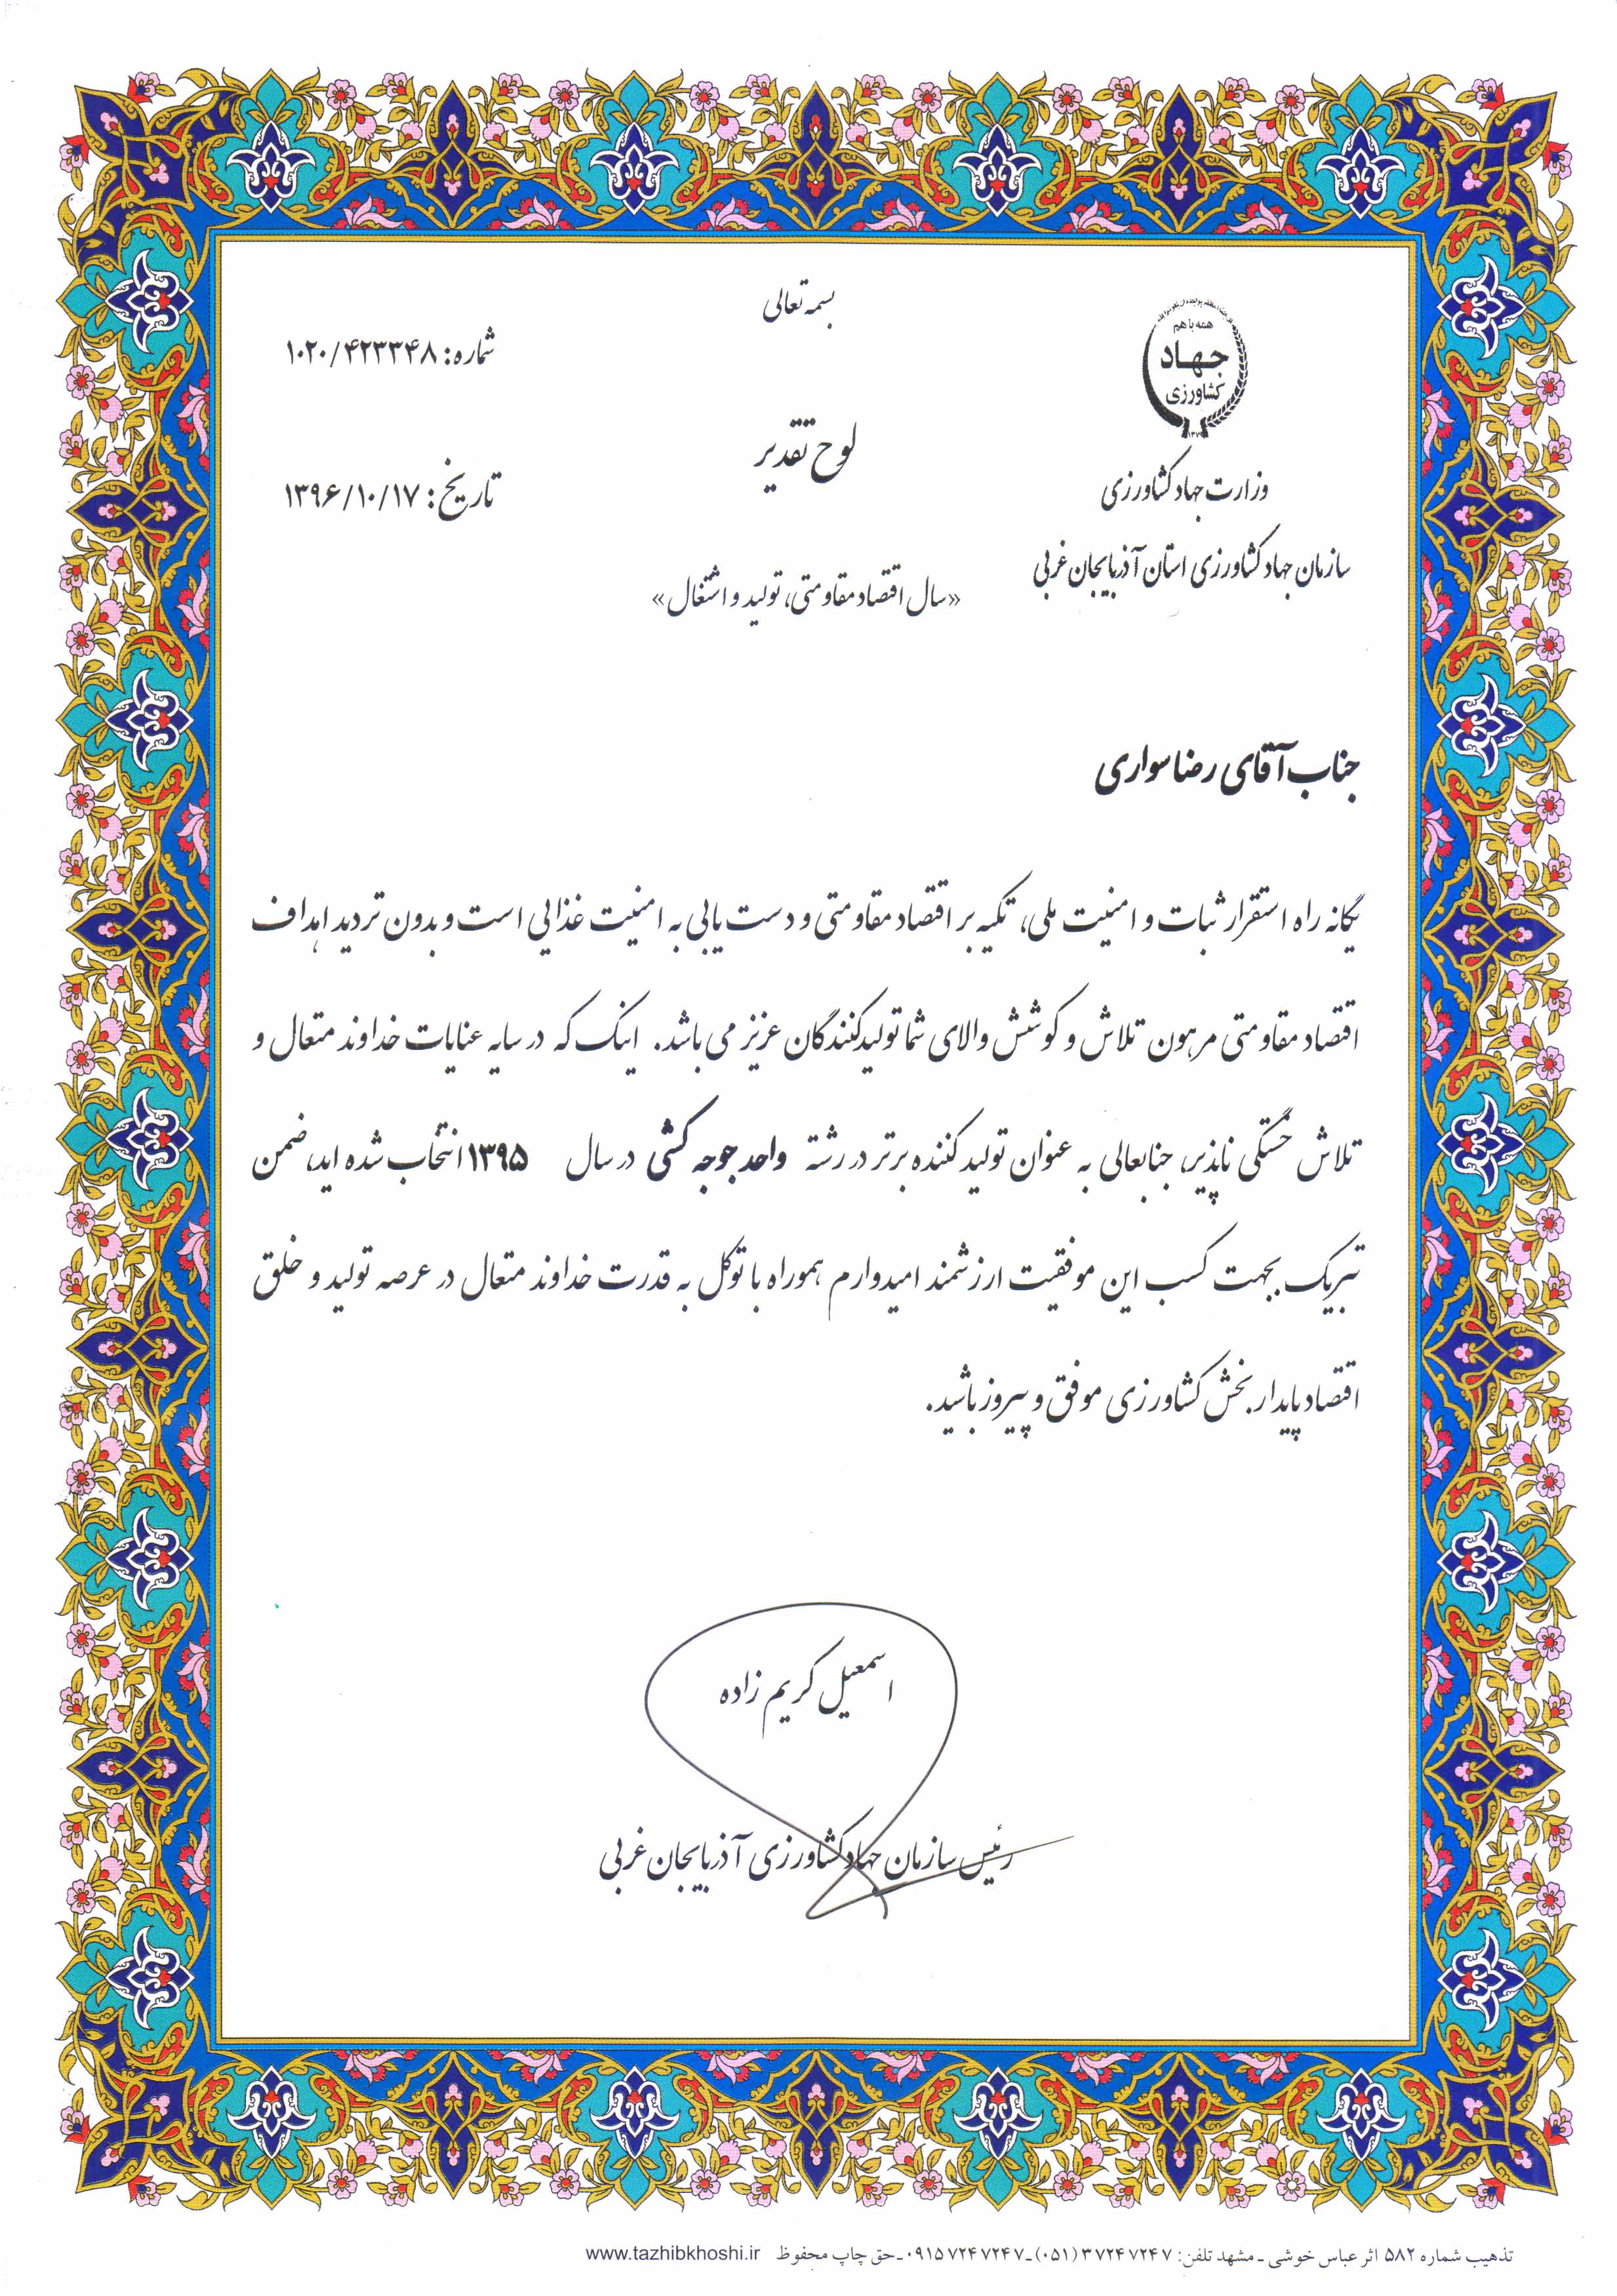 بسمه تعالی
همه با هم
جهاد
کشاورزی
وزارت جهاد کشاورزی
سازمان جهاد کشاورزی استان آذربایجان غربی
شماره: ۱۰۲۰/۴۲۳۳۴۸
لوح تقدیر
تاریخ: ۱۳۹۶/۱۰/۱۷
«سال اقتصاد مقاومتی، تولید و اشتغال»
جناب آقای رضا سواری
یگانه راه استقرار ثبات و امنیت ملی، تکیه بر اقتصاد مقاومتی و دست یابی به امنیت غذایی است و بدون تردید اهداف
اقتصاد مقاومتی مرهون تلاش و کوشش والای شما تولیدکنندگان عزیز می باشد. اینک که در سایه عنایات خداوند متعال و
تلاش خستگی ناپذیر، جنابعالی به عنوان تولید کننده برتر در رشته واحد جوجه کشی در سال ۱۳۹۵ انتخاب شده اید، ضمن
تبریک بجهت کسب این موفقیت ارزشمند امیدوارم همواره با توکل به قدرت خداوند متعال در عرصه تولید و خلق
اقتصاد پایدار بخش کشاورزی موفق و پیروز باشید.
اسمعیل کریم زاده
رئیس سازمان جهاد کشاورزی آذربایجان غربی
تذهیب شماره ۵۸۲ اثر عباس خوشی ـ مشهد تلفن: ۳۷۲۴۷۲۴۷ (۰۵۱) ـ ۰۹۱۵۷۲۴۷۲۴۷ ـ حق چاپ محفوظ www.tazhibkhoshi.ir